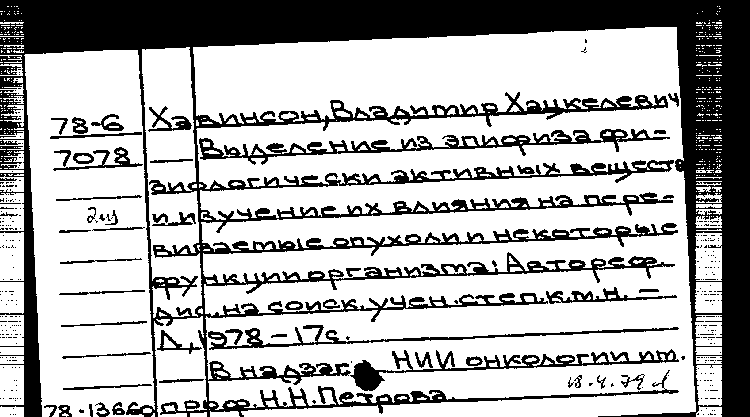 78-6 Хавинсон, Владимир Хацкелевич
7078 Выделение из эпифиза фи-
зиологически активных веществ
2из и изучение их влияния на пере-
виваемые опухоли и некоторые
функции организма: Автореф.
дис. на соиск. учен. степ. к.м.н. –
Л, 1978 – 17с.
В надзаг. НИИ онкологии им.
проф. Н.Н. Петрова.
18.4.79
78-13660